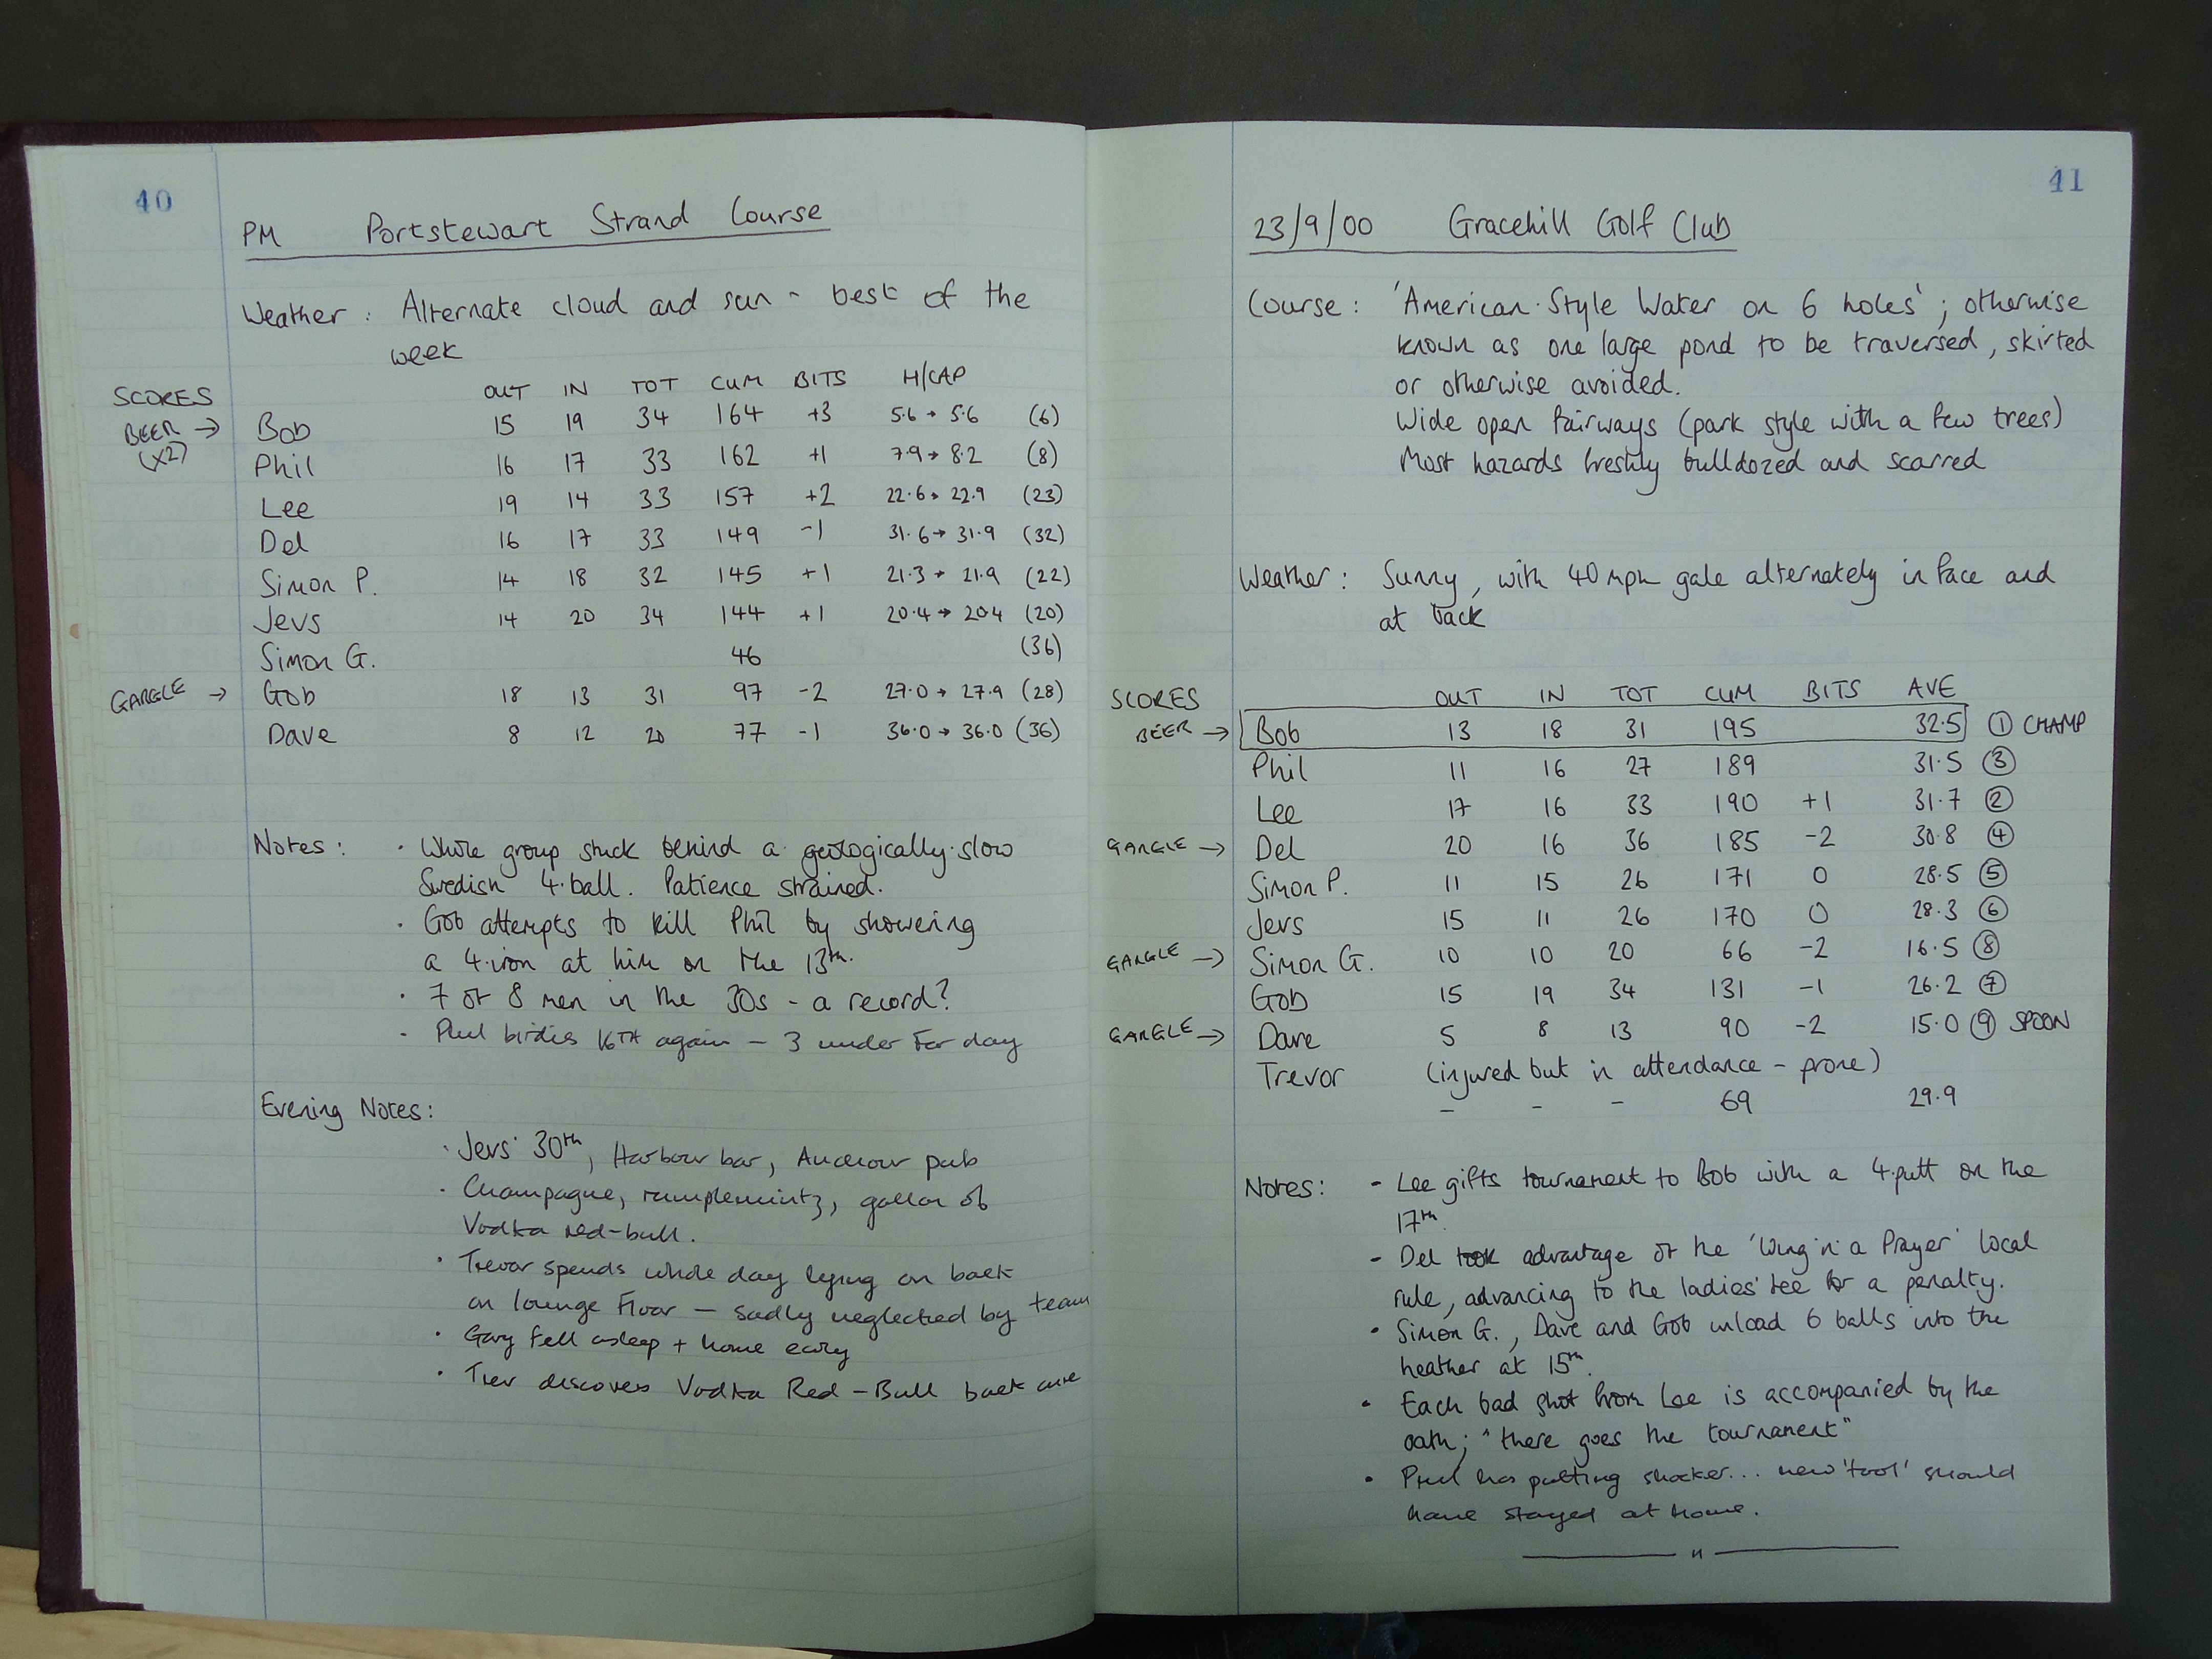 40
PM Portstewart Strand Course
Weather: Alternate cloud and sun - best of the
week
SCORES OUT IN TOT CUM BITS H/CAP
BEER (X2) → Bob 15 19 34 164 +3 5.6 → 5.6 (6)
Phil 16 17 33 162 +1 7.9 → 8.2 (8)
Lee 19 14 33 157 +2 22.6 → 22.9 (23)
Del 16 17 33 149 -1 31.6 → 31.9 (32)
Simon P. 14 18 32 145 +1 21.3 → 21.9 (22)
Jevs 14 20 34 144 +1 20.4 → 20.4 (20)
Simon G. 46 (36)
GARGLE → Gob 18 13 31 97 -2 27.0 → 27.9 (28)
Dave 8 12 20 77 -1 36.0 → 36.0 (36)
Notes: · Whole group stuck behind a geologically-slow
Swedish 4-ball. Patience strained.
· Gob attempts to kill Phil by showering
a 4-iron at him on the 13th.
· 7 of 8 men in the 30s - a record?
- Phil birdies 16TH again - 3 under for day
Evening Notes:
· Jevs' 30th, Harbour bar, Anchor pub
· Champagne, rumplemintz, gallon of
Vodka red-bull.
· Trevor spends whole day lying on back
on lounge floor - sadly neglected by team
· Gary fell asleep + home early
· Trev discovers Vodka Red-Bull back cure
41
23/9/00 Gracehill Golf Club
Course: 'American-Style Water on 6 holes'; otherwise
known as one large pond to be traversed, skirted
or otherwise avoided.
Wide open fairways (park style with a few trees)
Most hazards freshly bulldozed and scarred
Weather: Sunny, with 40 mph gale alternately in face and
at back
SCORES OUT IN TOT CUM BITS AVE
BEER → Bob 13 18 31 195 32.5 ① CHAMP
Phil 11 16 27 189 31.5 ③
Lee 17 16 33 190 +1 31.7 ②
GARGLE → Del 20 16 36 185 -2 30.8 ④
Simon P. 11 15 26 171 0 28.5 ⑤
Jevs 15 11 26 170 0 28.3 ⑥
GARGLE → Simon G. 10 10 20 66 -2 16.5 ⑧
Gob 15 19 34 131 -1 26.2 ⑦
GARGLE → Dave 5 8 13 90 -2 15.0 ⑨ SPOON
Trevor (injured but in attendance - prone)
- - - 69 29.9
Notes: - Lee gifts tournament to Bob with a 4-putt on the
17th.
- Del took advantage of the 'Wing 'n' a Prayer' local
rule, advancing to the ladies' tee for a penalty.
· Simon G., Dave and Gob unload 6 balls into the
heather at 15th.
· Each bad shot from Lee is accompanied by the
oath; "there goes the tournament"
· Phil has putting shocker... new 'tool' should
have stayed at home.
— " —